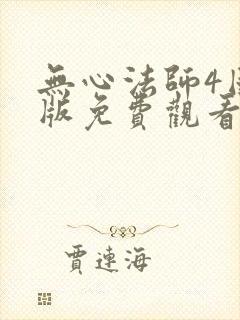 無心法師4
版免費觀看
賈連海